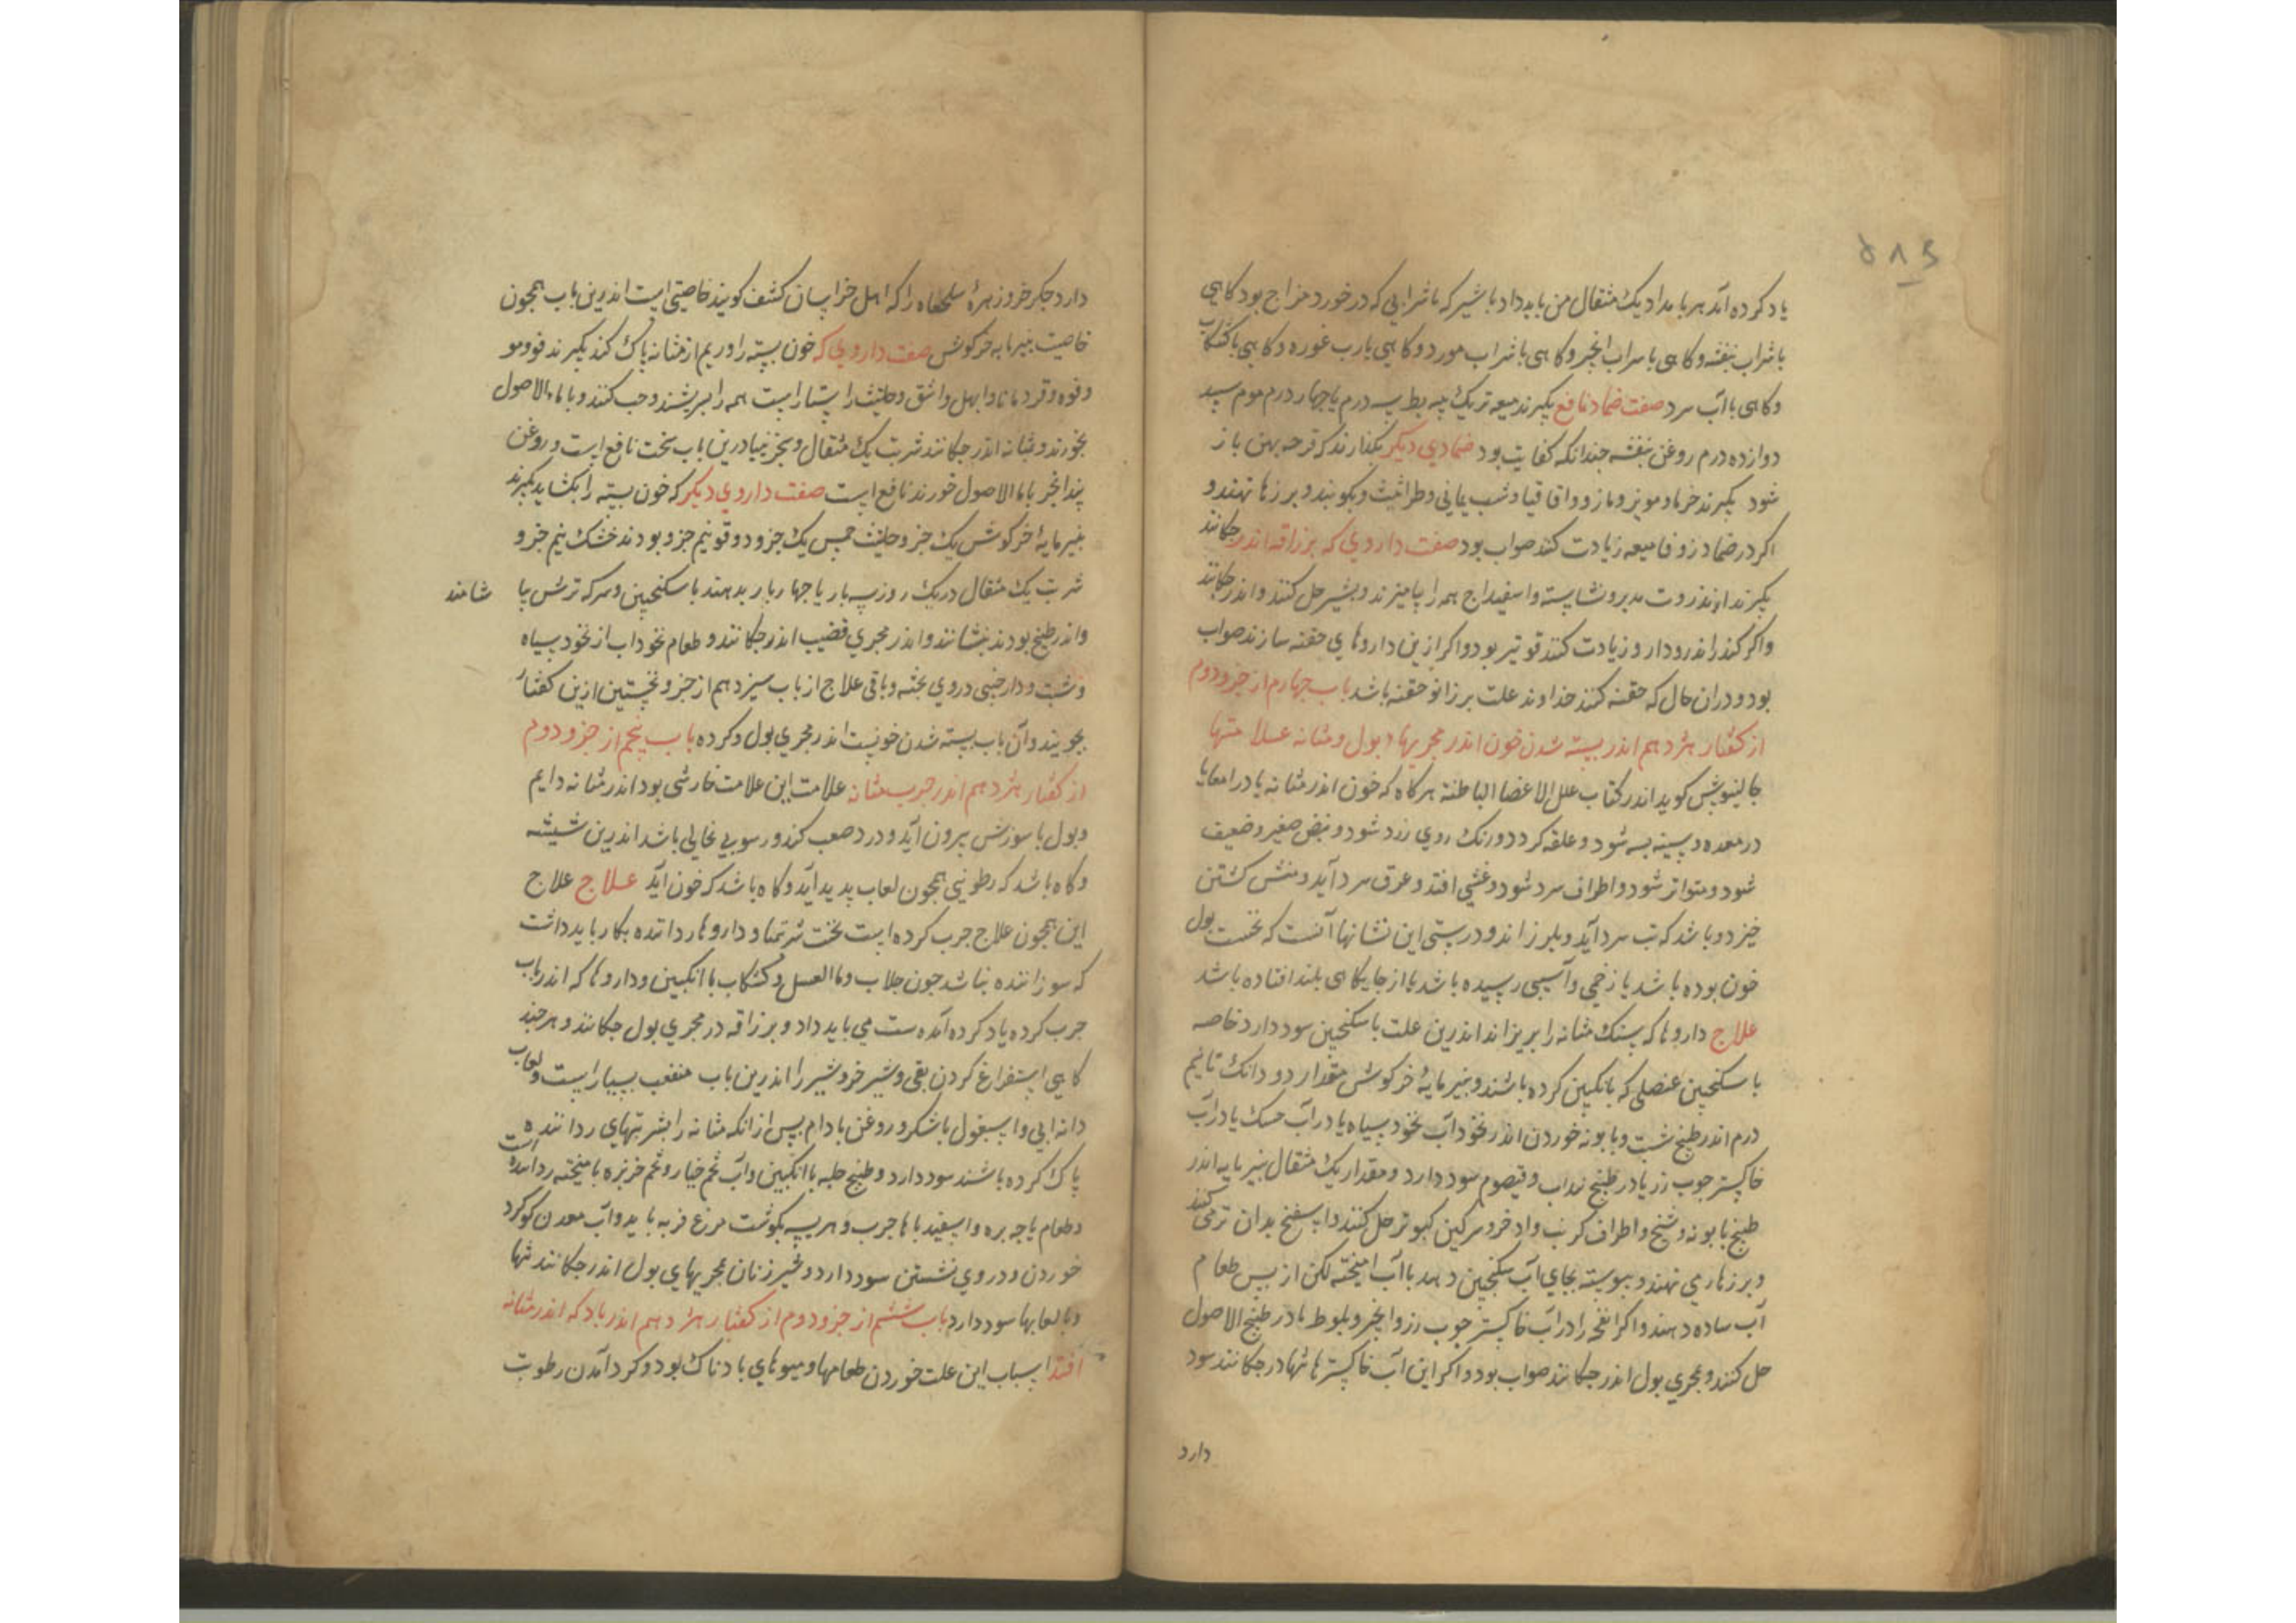 ۵۸۶
یاد کرده آمد هر بامداد یک مثقال من باید داد با شیر که با شرابی که در خورد مزاج بود کاهی
با شراب بنفشه و کاهی با سراب انجیر و کاهی با شراب مورد و کاهی با رب غوره و کاهی با کشکاب
و کاهی با آب سرد صفت ضماد نافع بکیرند میعه تر یک پیه بط سه درم یا جهار درم موم سپید
دوازده درم روغن بنفشه جندانکه کفایت بود ضمادی دیکر بکذارند که قرحه بهن باز
شود بکیرند خرما و مویز و مازو و اقاقیا و شب یمانی و طراثیث و بکوبند و بر زهار نهند و
اکر در ضماد زوفا میعه زیادت کنند صواب بود صفت داروی که بزراقه اندر جکانند
بکیرند انزروت مدبر و نشاسته و اسفیداج همه را بیامیزند و بشیر حل کنند و اندر جکانند
و اکر کندر اندر و دارو زیادت کنند قوی تر بود و اکر ازین داروهای حقنه سازند صواب
بود و دران حال که حقنه کنند خداوند علت بر زانو خفته باشد باب جهارم از جزو دوم
از کفتار هژدهم اندر بسته شدن خون اندر مجریهاء بول و مثانه علامتها
جالینوس کوید اندر کتاب علل الاعضا الباطنه هر کاه که خون اندر مثانه یا در امعا یا
در معده و سینه بسته شود و علقه کردد و رنک روی زرد شود و نبض صغیر و ضعیف
شود و متواتر شود و اطراف سرد شود و غشی افتد و عرق سرد آید و منش کشتن
خیزد و باشد که تب سرد آید و بلرزاند و درستی این نشانها آنست که نخست بول
خون بوده باشد یا زخمی و آسیبی رسیده باشد یا از جایکاهی بلند افتاده باشد
علاج داروها که سنک مثانه را بریزاند اندرین علت با سکنجبین سود دارد خاصه
با سکنجبین عنصلی که بانکبین کرده باشند و بنیر مایهٔ خرکوش مقدار دو دانک تا نیم
درم اندر طبیخ شبت و بابونه خوردن اندر نخود آب نخود سیاه یا در آب حسک یا در آب
خاکستر جوب رز یا در طبیخ سداب و قیصوم سود دارد و مقدار یک مثقال بنیر مایه اندر
طبیخ بابونه و شیح و اطراف کرنب و اذخر و سرکین کبوتر حل کنند و اسفنج بدان تر می کنند
و بر زهار می نهند و بیوسته بجای آب سکنجبین دهند با آب امیخته لکن از بس طعام
آب ساده دهند و اکر انفحه را در آب خاکستر جوب رز و انجیر و بلوط یا در طبیخ الاصول
حل کنند و بمجری بول اندر جکانند صواب بود و اکر این آب خاکسترها تنها در جکانند سود
دارد
دارد جکر خر و زهرهٔ سلحفاه را که اهل خراسان کشف کویند خاصیتی است اندرین باب همجون
خاصیت بنیر مایه خرکوش صفت داروی که خون بسته را و ریم از مثانه باک کند بکیرند فو و مو
و فوه و قردمانا و ابهل و اشق و حلتیث راستاراست همه را بسریشند و حب کنند و با ماء الاصول
بخورند و مثانه اندر جکانند شربت یک مثقال و بجز بنیادرین باب سخت نافع است و روغن
بیدانجیر با ماء الاصول خورند نافع است صفت داروی دیکر که خون بسته را بکشاید بکیرند
بنیر مایهٔ خرکوش یک جزو حلتیث خمس یک جزو دوقو نیم جزو بودنه خشک نیم جزو
شربت یک مثقال در یک روز سه بار یا جهار بار بدهند با سکنجبین و سرکه ترش بیا شامند
و اندر طبیخ بودنه بنشانند و اندر مجری قضیب اندر جکانند و طعام نخوداب از نخود سیاه
و شبت و دارجینی در وی بخته و باقی علاج از باب سیزدهم از جزو نخستین ازین کفتار
بجویند و آن باب بسته شدن خونست اندر مجری بول و کرده باب پنجم از جزو دوم
از کفتار هژدهم اندر جرب مثانه علامت این علامت خارشی بود اندر مثانه دایم
و بول با سوزش بیرون آید و درد صعب کند و رسوبی نخالی باشد اندرین شیشه
و کاه باشد که رطوبتی همجون لعاب بدید آید و کاه باشد که خون آید علاج علاج
این همجون علاج جرب کرده است نخست شربتها و داروها زداننده بکار باید داشت
که سوزاننده نباشد جون جلاب و ماء العسل و کشکاب با انکبین و داروها که اندر باب
جرب کرده یاد کرده آمده ست می باید داد و بزراقه در مجری بول جکانند و هر جند
کاهی استفراغ کردن بقی و شیر خر و شیر را اندرین باب منفعت بسیار است و لعاب
دانه ابی و اسبغول با شکر و روغن بادام بس از انکه مثانه را بشربتهای زداننده
پاک کرده باشند سود دارد و طبیخ حلبه با انکبین و آب تخم خیار و تخم خربزه بامیخته زداینده است
و طعام باجه بره و اسفیدباها جرب و هریسه بکوشت مرغ فربه باید و آب معدن کوکرد
خوردن و در وی نشستن سود دارد و شیر زنان بمجریهای بول اندر جکانند تنها
و با لعابها سود دارد باب ششم از جزو دوم از کفتار هژدهم اندر باد که اندر مثانه
افتد اسباب این علت خوردن طعامها و میوهای بادناک بود و کرد آمدن رطوبت